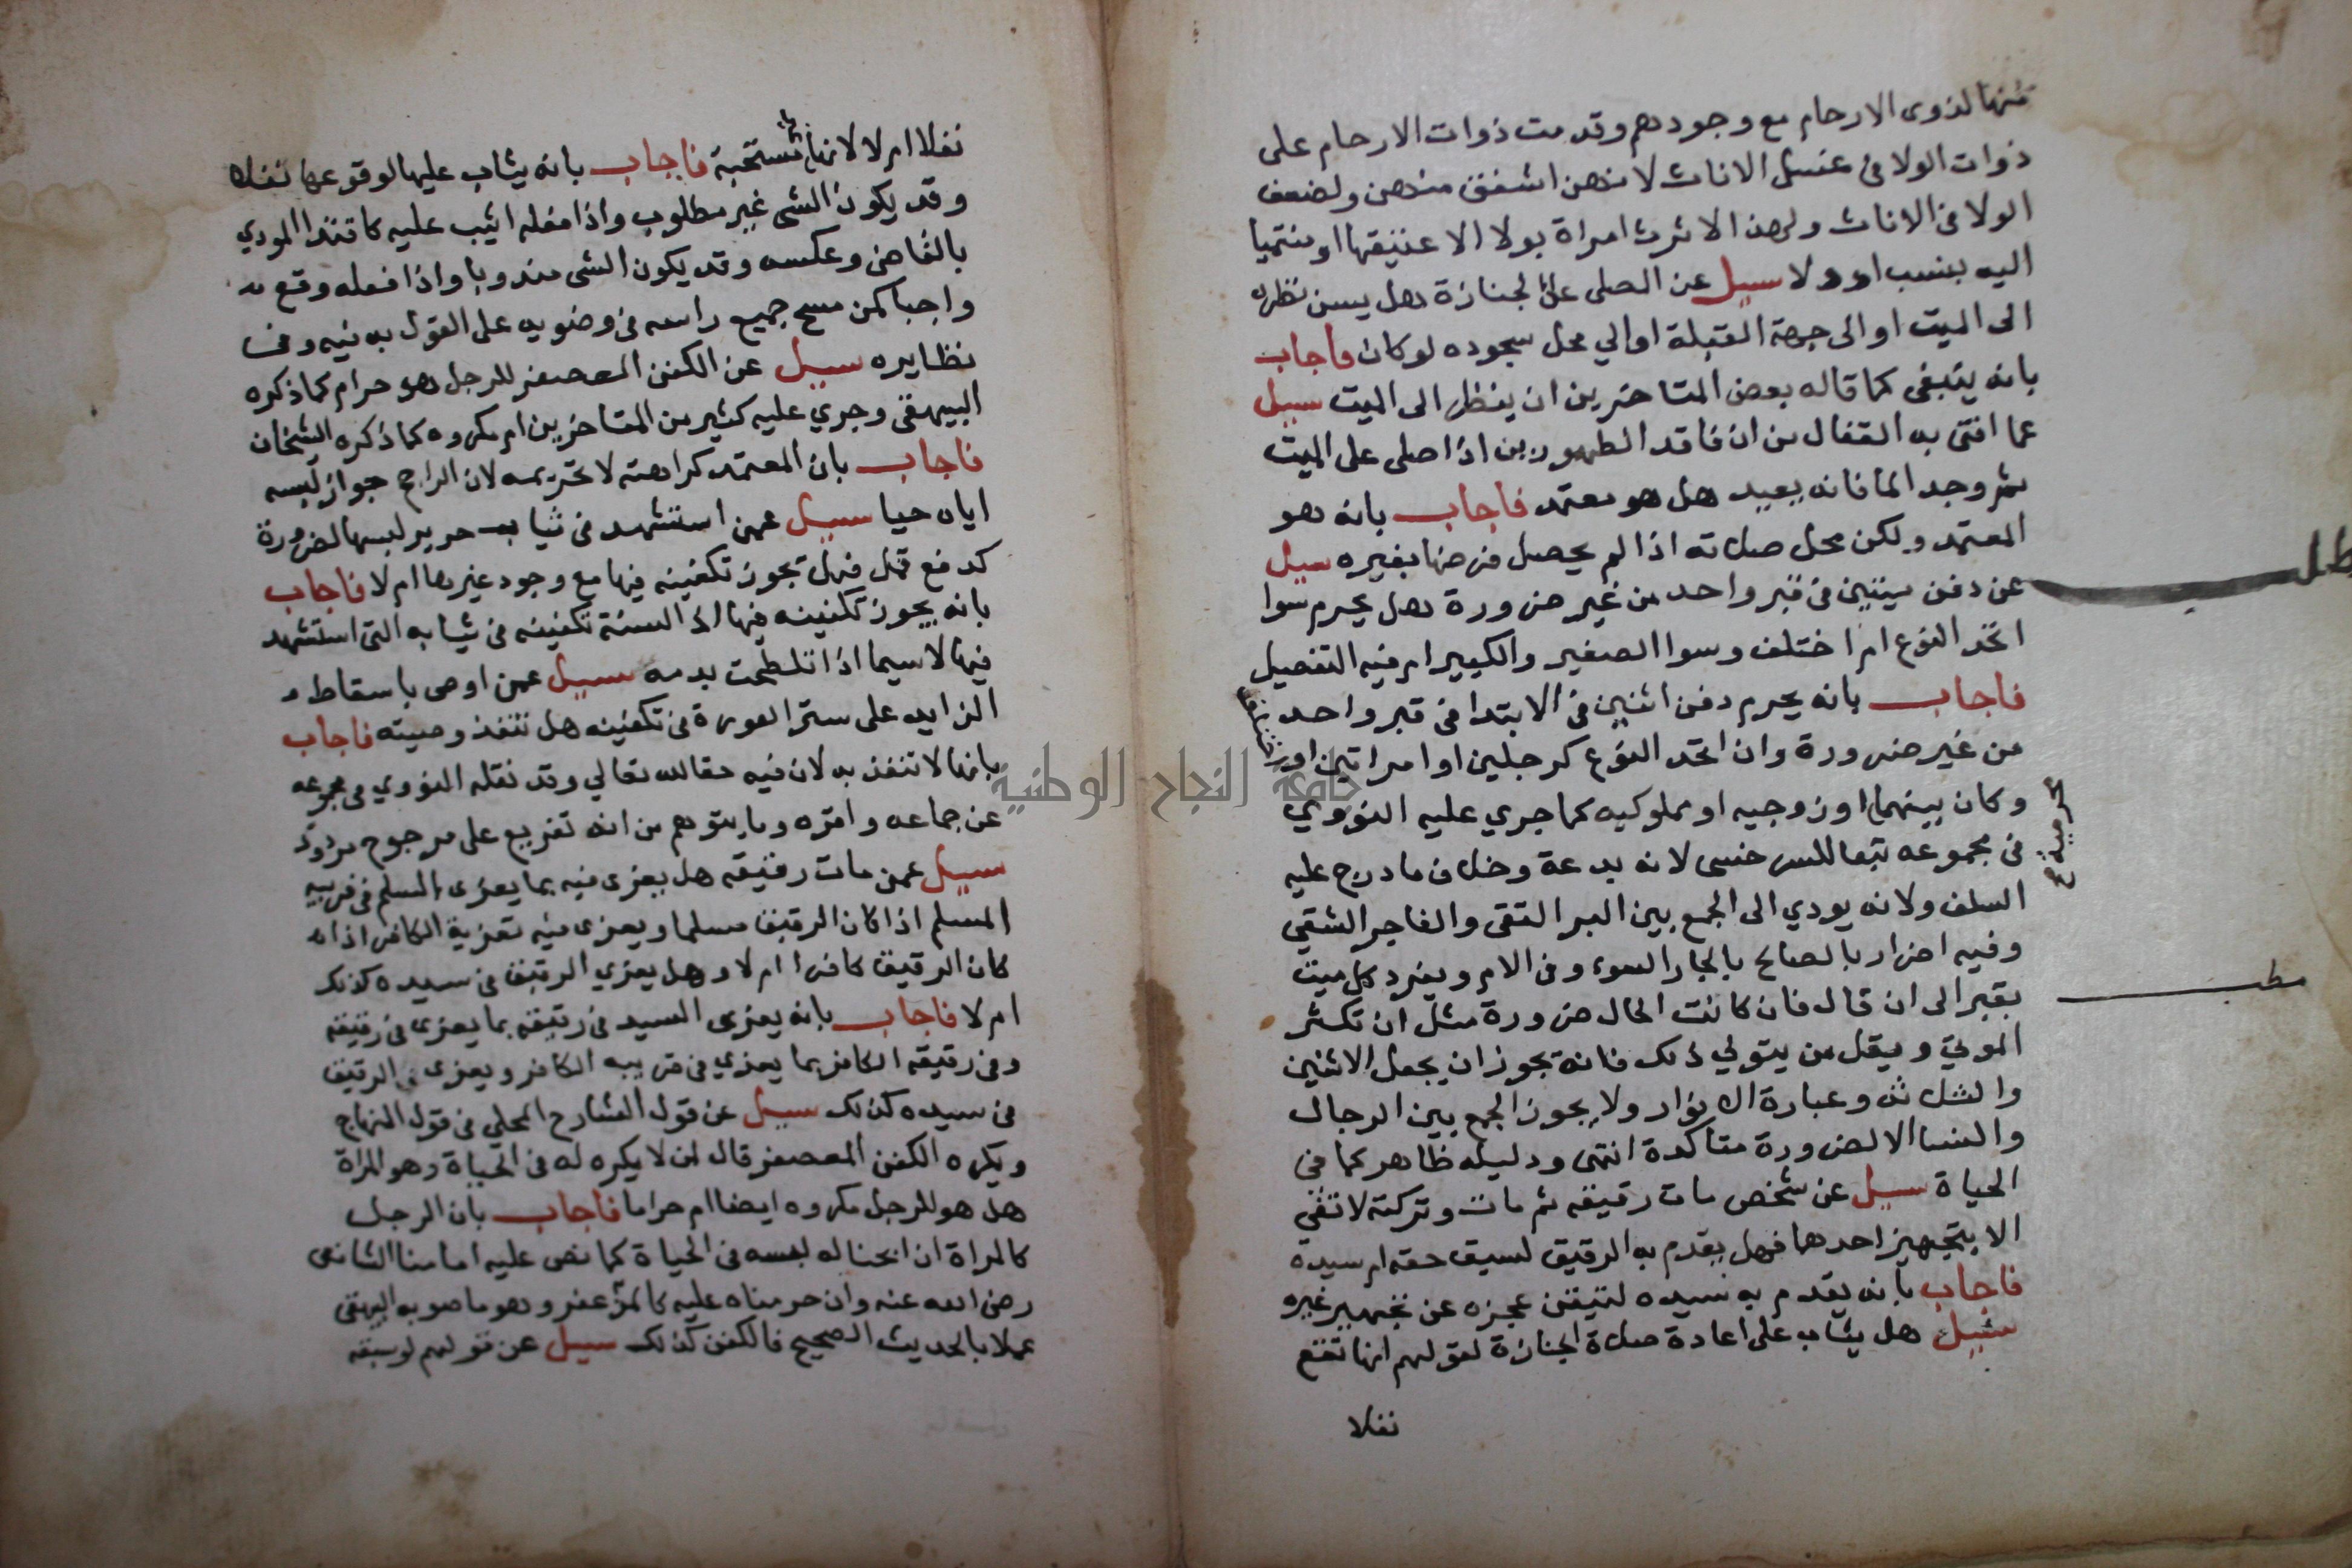 منها لذوى الارحام مع وجودهم وقدمت ذوات الارحام على
ذوات الولا في غسل الاناث لانهن اشفق منهن ولضعف
الولا في الاناث ولهذا لا ترث امراة بولا الا عتيقها او منتميا
اليه بنسب او ولا سيل عن المصلى على الجنازة هل يسن نظره
الى الميت او الى جهة القبلة او الي محل سجوده لو كان فاجاب
بانه ينبغى كما قاله بعض المتاخرين ان ينظر الى الميت سيل
عما افتى به القفال من ان فاقد الطهورين اذا صلى على الميت
ثم وجد الما فانه يعيد هل هو معتمد فاجاب بانه هو
المعتمد ولكن محل صلاته اذا لم يحصل فرضها بغيره سيل
عن دفن ميتين في قبر واحد من غير ضرورة هل يحرم سوا
اتحد النوع ام اختلف وسوا الصغير والكبير ام فيه التفصيل
فاجاب بانه يحرم دفن اثنين في الابتدا في قبر واحد
من غير ضرورة وان اتحد النوع كرجلين او امراتين او
وكان بينهما او زوجيه او مملوكيه كما جري عليه النووي
محرمية
في مجموعه تبعا للسرخسى لانه بدعة وخلاف ما درج عليه
السلف ولانه يودي الى الجمع بين البر التقى والفاجر الشقي
وفيه اضرار بالصالح بالجار السوء وفي الام ويفرد كل ميت
بقبر الى ان قال فان كانت الحال ضرورة مثل ان تكثر
مطلب
الموتي ويقل من يتولي ذلك فانه يجوز ان يجعل الاثنين
والثلاثة وعبارة الانوار ولا يجوز الجمع بين الرجال
والنسا الا لضرورة متاكدة انتهى ودليله ظاهر كما في
الحياة سيل عن شخص مات رقيقه ثم مات وتركته لا تفي
الا بتجهيز احدهما فهل يقدم به الرقيق لسبق حقه ام سيده
فاجاب بانه يقدم به سيده لتيقن عجزه عن تجهيز غيره
سئيل هل يثاب على اعادة صلاة الجنازة لقولهم انها تقع
نفلا
نفلا ام لا لانها مستحبة فاجاب بانه يثاب عليها لوقوعها نفلا
وقد يكون الشى غير مطلوب واذا فعله اثيب عليه كاقتدا المودي
بالقاضى وعكسه وقد يكون الشى مندوبا واذا فعله وقع
واجبا كمن مسح جميع راسه في وضويه على القول به فيه وفى
نظايره سيل عن الكفن المعصفر للرجل هو حرام كما ذكره
البيهقي وجري عليه كثير من المتاخرين ام مكروه كما ذكره الشيخان
فاجاب بان المعتمد كراهته لا تحريمه لان الراجح جواز لبسه
اياه حيا سيل عمن استشهد في ثياب حرير لبسها لضرورة
كدفع قمل فهل تجوز تكفينه فيها مع وجود غيرها ام لا فاجاب
بانه يجوز تكفينه فيها اذ السنة تكفينه في ثيابه التي استشهد
فيها لاسيما اذا تلطخت بدمه سيل عمن اوصى باسقاط
الزايد على ستر العورة في تكفينه هل تنفذ وصيته فاجاب
بانها لا تنفذ به لان فيه حقا لله تعالي وقد نقله النووي في مجموعه
عن جماعه واقره وما يتوهم من انه تفريع على مرجوح مردود
سيل عمن مات رقيقه هل يعزى فيه بما يعزى المسلم في قريبه
المسلم اذا كان الرقيق مسلما ويعزى فيه تعزية الكافر اذا
كان الرقيق كافرا ام لا وهل يعزي الرقيق في سيده كذلك
ام لا فاجاب بانه يعزى السيد في رقيقه بما يعزى في رقيقه
وفي رقيقه الكافر بما يعزي في قريبه الكافر ويعزى الرقيق
في سيده كذلك سيل عن قول الشارح المحلي في قول المنهاج
ويكره الكفن المعصفر قال لمن لا يكره له في الحياة وهو المراة
هل هو للرجل مكروه ايضا ام حراما فاجاب بان الرجل
كالمراة ان ابحنا له لبسه في الحياة كما نص عليه امامنا الشافعى
رضى الله عنه وان حرمناه عليه كالمزعفر وهو ما صوبه البيهقي
عملا بالحديث الصحيح فالكفن كذلك سيل عن قولهم لو سبقه
جامعة النجاح الوطنية